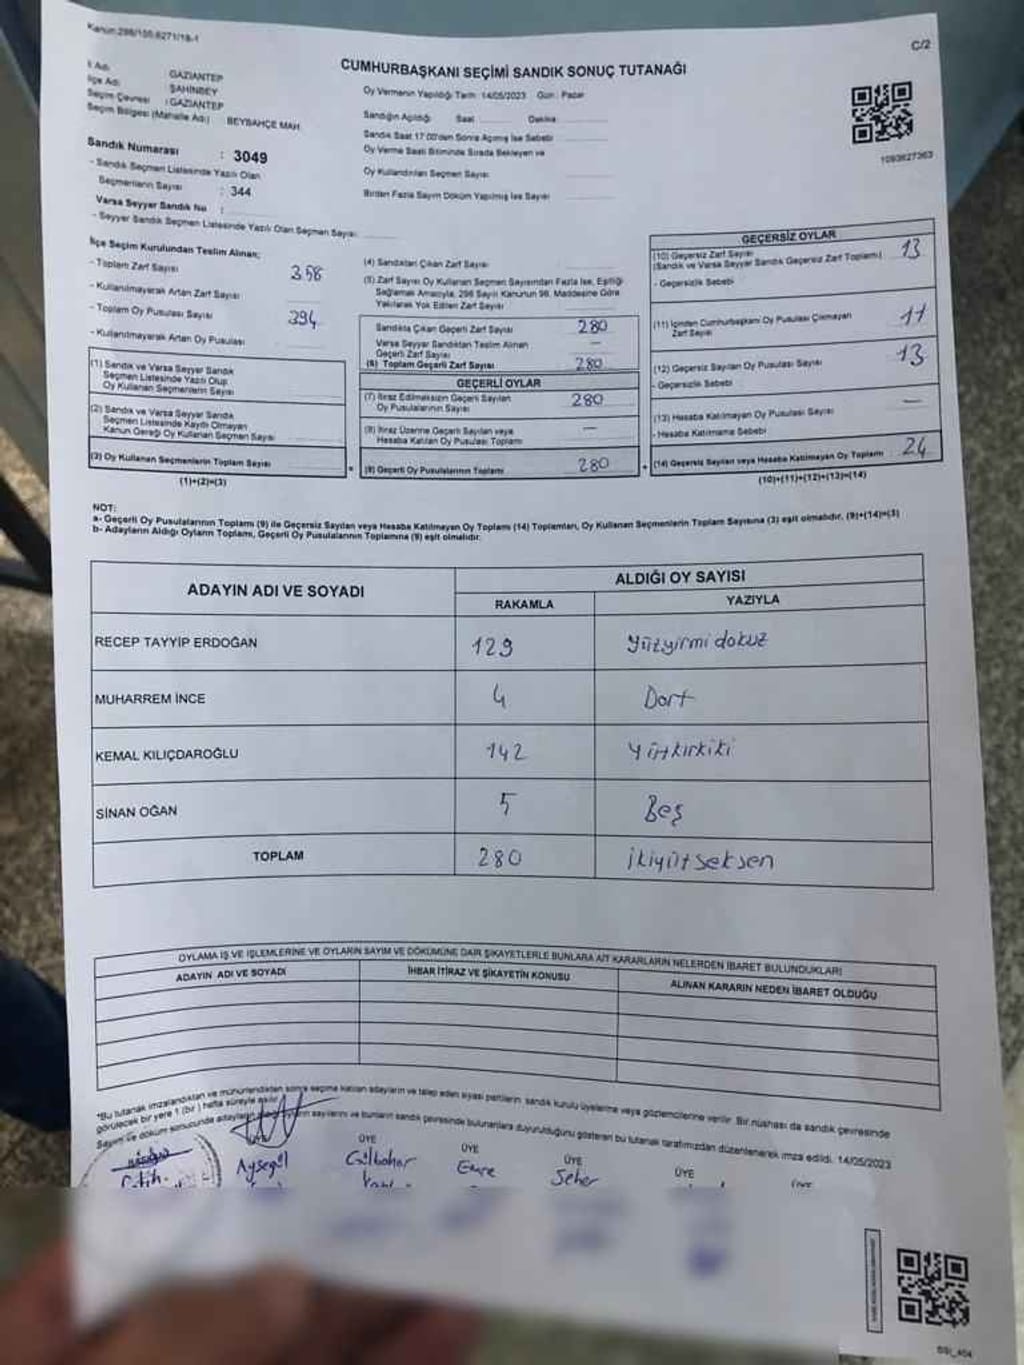 Kanun:298/105.6271/18-1
C/2
CUMHURBAŞKANI SEÇİMİ SANDIK SONUÇ TUTANAĞI
İl Adı GAZİANTEP
İlçe Adı ŞAHİNBEY
Seçim Çevresi : GAZİANTEP
Seçim Bölgesi (Mahalle Adı) BEYBAHÇE MAH.
Oy Vermenin Yapıldığı Tarih: 14/05/2023 Gün: Pazar
Sandığın Açıldığı Saat Dakika
Sandık Saat 17:00'den Sonra Açılmış İse Sebebi
Oy Verme Saati Bitiminde Sırada Bekleyen ve
Oy Kullandırılan Seçmen Sayısı
Birden Fazla Sayım Döküm Yapılmış İse Sayısı
1093627363
Sandık Numarası : 3049
- Sandık Seçmen Listesinde Yazılı Olan
Seçmenlerin Sayısı : 344
Varsa Seyyar Sandık No :
- Seyyar Sandık Seçmen Listesinde Yazılı Olan Seçmen Sayısı
İlçe Seçim Kurulundan Teslim Alınan;
- Toplam Zarf Sayısı 358
- Kullanılmayarak Artan Zarf Sayısı
- Toplam Oy Pusulası Sayısı 394
- Kullanılmayarak Artan Oy Pusulası
(1) Sandık ve Varsa Seyyar Sandık
Seçmen Listesinde Yazılı Olup
Oy Kullanan Seçmenlerin Sayısı
(2) Sandık ve Varsa Seyyar Sandık
Seçmen Listesinde Kayıtlı Olmayan
Kanun Gereği Oy Kullanan Seçmen Sayısı
(3) Oy Kullanan Seçmenlerin Toplam Sayısı
(1)+(2)=(3)
(4) Sandıktan Çıkan Zarf Sayısı
(5) Zarf Sayısı Oy Kullanan Seçmen Sayısından Fazla İse, Eşitliği
Sağlamak Amacıyla, 298 Sayılı Kanunun 98. Maddesine Göre
Yakılarak Yok Edilen Zarf Sayısı
Sandıkta Çıkan Geçerli Zarf Sayısı 280
Varsa Seyyar Sandıktan Teslim Alınan
Geçerli Zarf Sayısı —
(6) Toplam Geçerli Zarf Sayısı 280
GEÇERLİ OYLAR
(7) İtiraz Edilmeksizin Geçerli Sayılan
Oy Pusulalarının Sayısı 280
(8) İtiraz Üzerine Geçerli Sayılan veya
Hesaba Katılan Oy Pusulası Toplamı —
(9) Geçerli Oy Pusulalarının Toplamı 280
GEÇERSİZ OYLAR
(10) Geçersiz Zarf Sayısı 13
(Sandık ve Varsa Seyyar Sandık Geçersiz Zarf Toplamı)
- Geçersizlik Sebebi
(11) İçinden Cumhurbaşkanı Oy Pusulası Çıkmayan
Zarf Sayısı 11
(12) Geçersiz Sayılan Oy Pusulası Sayısı 13
- Geçersizlik Sebebi
(13) Hesaba Katılmayan Oy Pusulası Sayısı —
- Hesaba Katılmama Sebebi
(14) Geçersiz Sayılan veya Hesaba Katılmayan Oy Toplamı 24
(10)+(11)+(12)+(13)=(14)
NOT:
a- Geçerli Oy Pusulalarının Toplamı (9) ile Geçersiz Sayılan veya Hesaba Katılmayan Oy Toplamı (14) Toplamları, Oy Kullanan Seçmenlerin Toplam Sayısına (3) eşit olmalıdır. (9)+(14)=(3)
b- Adayların Aldığı Oyların Toplamı, Geçerli Oy Pusulalarının Toplamına (9) eşit olmalıdır.
ADAYIN ADI VE SOYADI ALDIĞI OY SAYISI
RAKAMLA YAZIYLA
RECEP TAYYİP ERDOĞAN 129 yüzyirmi dokuz
MUHARREM İNCE 4 Dört
KEMAL KILIÇDAROĞLU 142 yüzkırkiki
SİNAN OĞAN 5 Beş
TOPLAM 280 ikiyüzseksen
OYLAMA İŞ VE İŞLEMLERİNE VE OYLARIN SAYIM VE DÖKÜMÜNE DAİR ŞİKAYETLERLE BUNLARA AİT KARARLARIN NELERDEN İBARET BULUNDUKLARI
ADAYIN ADI VE SOYADI İHBAR İTİRAZ VE ŞİKAYETİN KONUSU ALINAN KARARIN NEDEN İBARET OLDUĞU
*Bu tutanak imzalandıktan ve mühürlendikten sonra seçime katılan adayların ve talep eden siyasi partilerin sandık kurulu üyelerine veya gözlemcilerine verilir. Bir nüshası da sandık çevresinde
görülecek bir yere 1 (bir) hafta süreyle asılır.
Sayım ve döküm sonucunda adayların sayılarını ve bunların sandık çevresinde bulunanlara duyurulduğunu gösteren bu tutanak tarafımızdan düzenlenerek imza edildi. 14/05/2023
ÜYE ÜYE ÜYE ÜYE ÜYE
Ayşegül Gülbahar Emre Seher